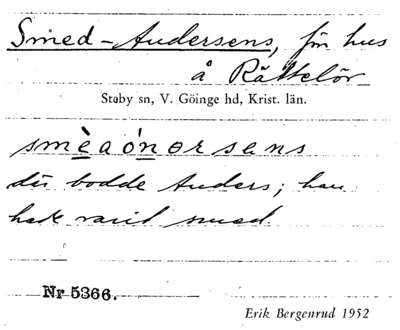 Smed-Andersens, f␣n hus
å Rättelöv
Støby sn, V. Göinge hd, Krist. län.
smèaónərsens
där bodde Anders; han
hade varit smed.
Nr 5366.
Erik Bergenrud 1952